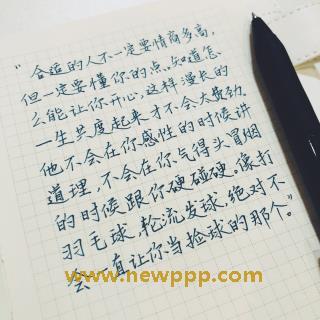 “合适的人不一定要情商多高,
但一定要懂你的点。知道怎
么能让你开心,这样漫长的
一生共度起来才不会太费劲。
他不会在你感性的时候讲
道理,不会在你气得头冒烟
的时候跟你硬碰硬。像打
羽毛球,轮流发球,绝对不
会一直让你当捡球的那个。”
www.newppp.com